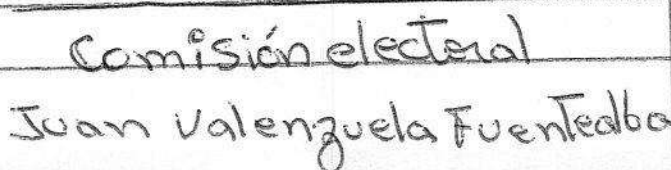 Comisión electoral
Juan Valenzuela Fuentealba